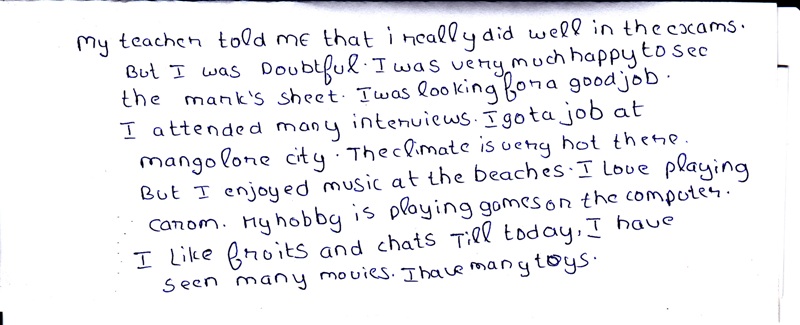 My teacher told ME that i really did well in the exams.
But I was Doubtful. I was very much happy to see
the mark's sheet. I was looking for a good job.
I attended many interviews. I got a job at
mangolore city. The climate is very hot there.
But I enjoyed music at the beaches. I Love playing
carom. My hobby is playing games on the computer.
I Like fruits and chats Till today, I have
seen many movies. I have many toys.